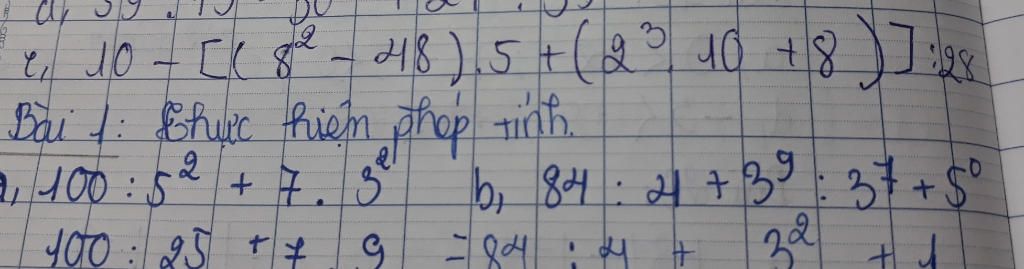 e, 10 - [(8² - 48).5 + (2³.10 + 8)] : 28
Bài 1: Thực hiện phép tính.
a, 100 : 5² + 7 . 3² b, 84 : 4 + 3⁹ : 3⁷ + 5⁰
100 : 25 + 7 9 = 84 : 4 + 3² + 1